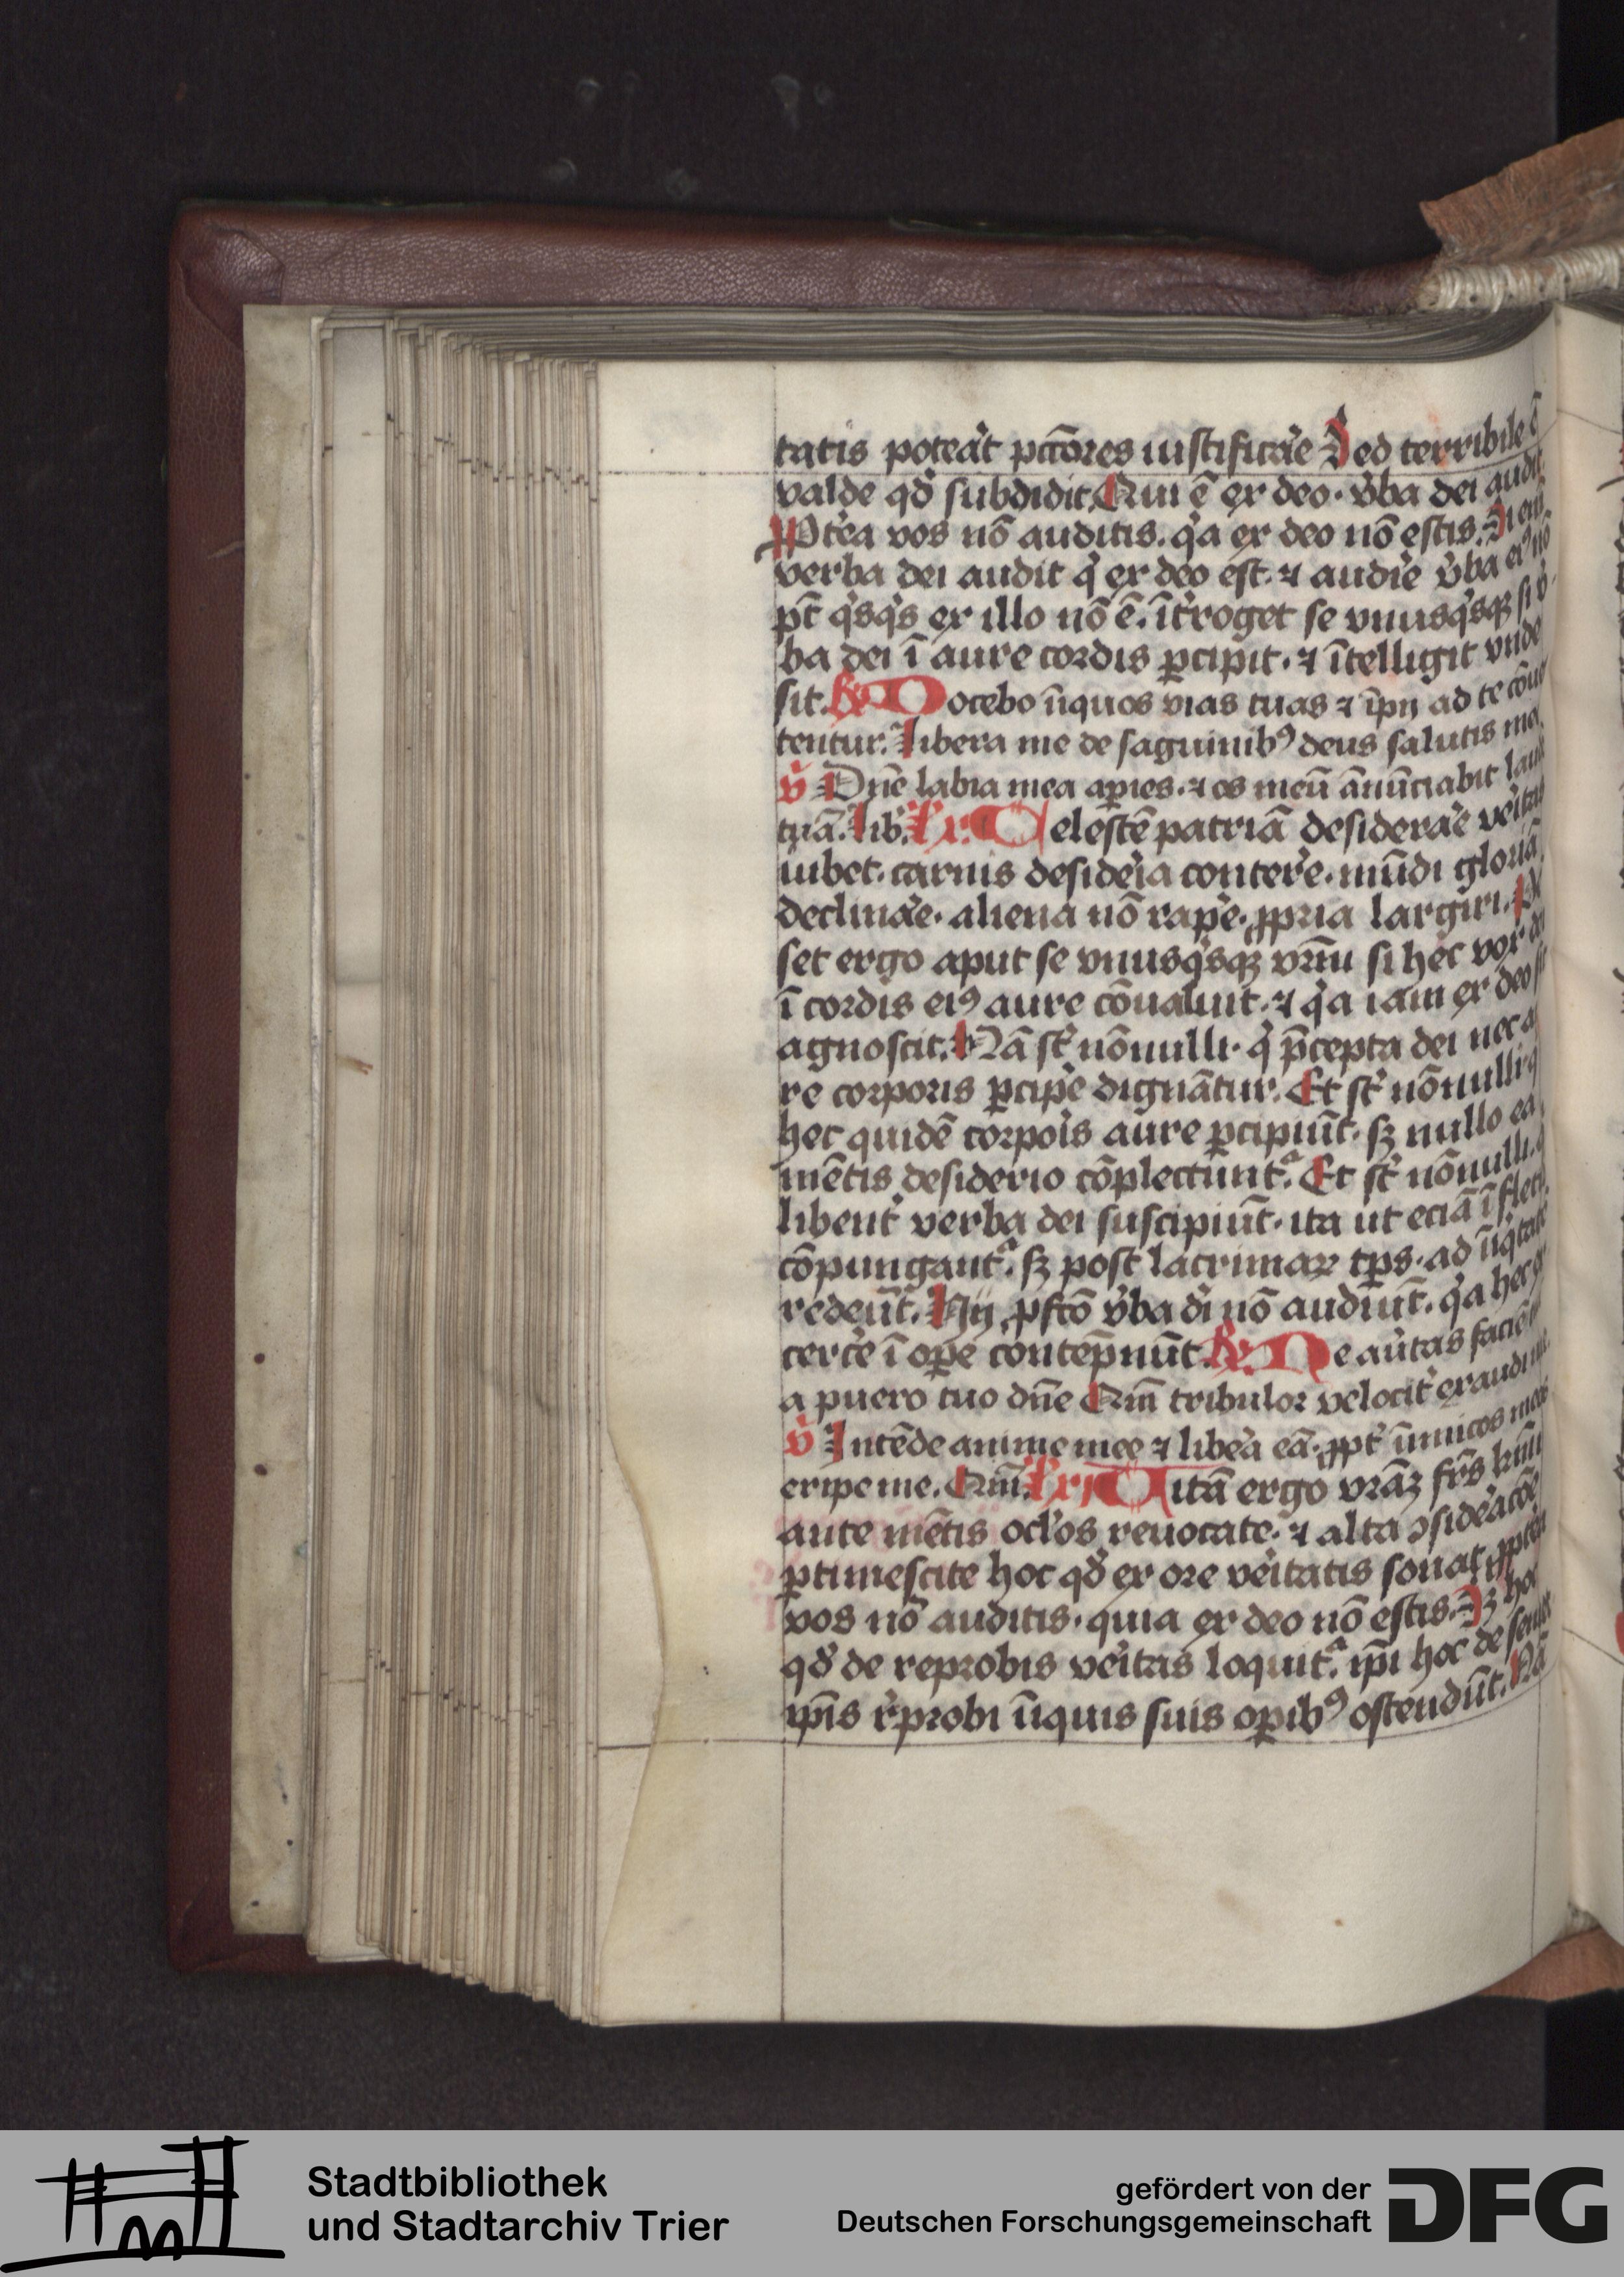 tatis poteāt pctōres iustificāe Sed terribile ē
valde qd̄ subdidit. Qui ē ex deo. v̄ba dei audit
Ptēa vos nō auditis. q̄a ex deo nō estis. Si eni
verba dei audit q̄ ex deo est. ⁊ audīe v̄ba eiꝯ nō
pt̄ q̄sq̄s ex illo nō ē. īt̄roget se vnusq̄sqꝫ si v̄
ba dei ī aure cordis ꝑcipit. ⁊ ītelligit vnde
sit. ℟ Docebo īiquos vias tuas ⁊ īpij ad te cōu̇
tentur. Libera me de saguinibꝯ deus salutis me
v̄ Dn̄e labia mea aꝑies. ⁊ os meū ānūciabit laud
tuā. Lib̄. Lc̄. Celestē patriā desiderāe v̄itas
iubet. carnis desidēia contere. mūdi gloriā
declināe. aliena nō raꝑe. ꝓpria largiri. Pē
set ergo aput se vnusq̄sqꝫ vrm̄ si hec vox dei
ī cordis eiꝯ aure cōualuit. ⁊ q̄a iam ex deo sit
agnoscit. Nā st̄ nōnulli. q̄ p̄cepta dei nec a
re corporis ꝑcipe dignātur. Et st̄ nōnulli q̄
hec quidē corpoīs aure ꝑcipiūt. sꝫ nullo ea
mētis desiderio cōplectunt̄. Et st̄ nōnulli. q̄
libent̄ verba dei suscipiūt. ita ut eciā ī fleti
cōpungant̄. sꝫ post lacrimaꝝ tp̄s. ad īiq̄tatē
redeūt. Hij ꝓfcō v̄ba dī nō audiūt. q̄a hec ex
cerc̄e ī oꝑe contēpnūt. ℟ Ne aūtas faciē
a puero tuo dn̄e Qm̄ tribulor velocit̄ exaudi me
v̄ Intēde anime mee ⁊ libēa eā. ꝓpt̄ inimicos meos
eripe me. Qm̄. Lc̄ Vitā ergo vrāꝫ frs̄ kmī
ante mētis oclos reuocate. ⁊ alta ꝯsidēacōe
ꝑtimescite hoc qd̄ ex ore vēitatis sonat. ꝓptēa
vos nō auditis. quia ex deo nō estis. Sꝫ hoc
qd̄ de reprobis vēitas loquit̄. ip̄i hoc de semet
ip̄is r̄probi īiquis suis oꝑibꝯ ostendūt. Nā
Stadtbibliothek
und Stadtarchiv Trier
gefördert von der
Deutschen Forschungsgemeinschaft
DFG